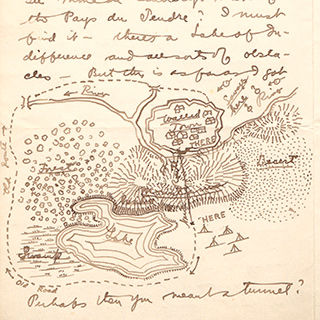 the Pays du Tendre. I must
find it – there's a Lake of In-
difference and all sorts of obsta-
cles – But this is as far as I got
River
Walled
City
THERE
River
Old Road
Trees
Desert
HERE
Lake
Swamp
Old Road
Perhaps then you meant a tunnel?